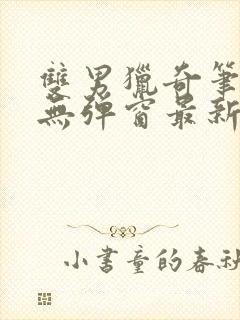 雙男獵奇筆
無彈窗最新
小書童的春秋